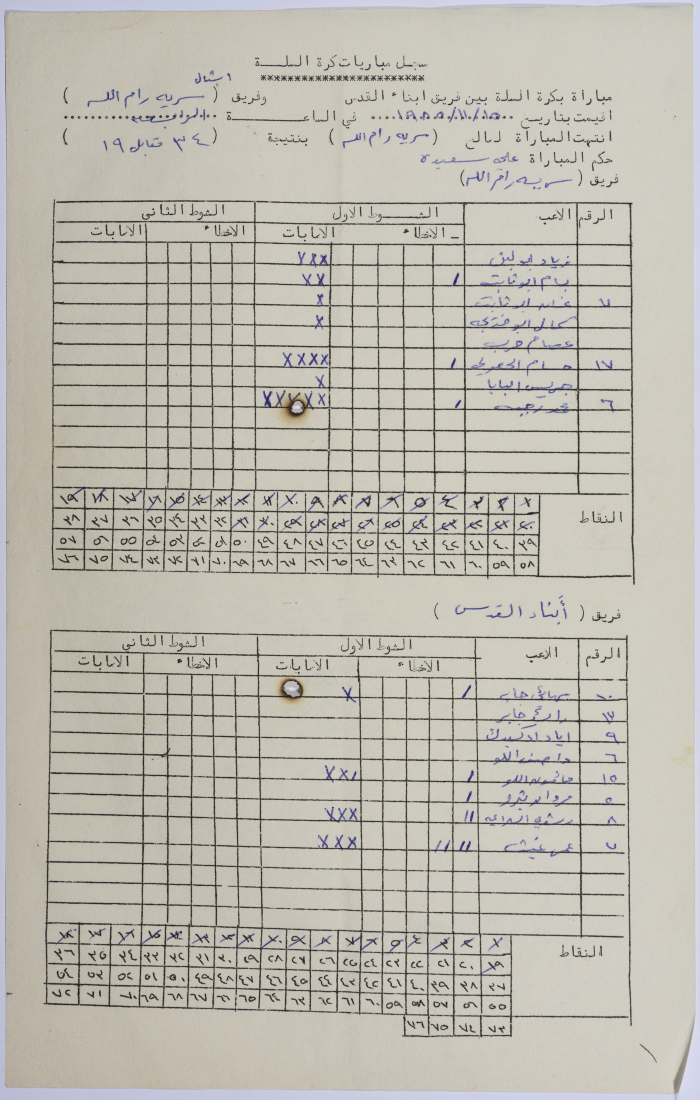 سجل مباريات كرة السلة
************************
اشبال
مباراة بكرة السلة بين فريق ابناء القدس وفريق ( سريه رام الله )
اقيمت بتاريخ في الساعة
انتهت المباراة لصالح ( سريه رام الله ) بنتيجة ( ٣٤ مقابل ١٩ )
حكم المباراة علي سعيده
فريق ( سريه رام الله )
الرقم اللاعب الشوط الاول الشوط الثاني
الاخطاء الاصابات الاخطاء الاصابات
زياد ابو لبن XXX
بسام ابو ثابت / XX
٧ ابو ثابت X
كمال ابو X
عصام حرب
١٧ حسام / XXXX
جريس البابا X
٦ محمد / XXXXX
النقاط
١ ٢ ٣ ٤ ٥ ٦ ٧ ٨ ٩ ١٠ ١١ ١٢ ١٣ ١٤ ١٥ ١٦ ١٧ ١٨ ١٩
٢٠ ٢١ ٢٢ ٢٣ ٢٤ ٢٥ ٢٦ ٢٧ ٢٨ ٢٩ ٣٠ ٣١ ٣٢ ٣٣ ٣٤ ٣٥ ٣٦ ٣٧ ٣٨
٣٩ ٤٠ ٤١ ٤٢ ٤٣ ٤٤ ٤٥ ٤٦ ٤٧ ٤٨ ٤٩ ٥٠ ٥١ ٥٢ ٥٣ ٥٤ ٥٥ ٥٦ ٥٧
٥٨ ٥٩ ٦٠ ٦١ ٦٢ ٦٣ ٦٤ ٦٥ ٦٦ ٦٧ ٦٨ ٦٩ ٧٠ ٧١ ٧٢ ٧٣ ٧٤ ٧٥ ٧٦
فريق ( أبناء القدس )
الرقم اللاعب الشوط الاول الشوط الثاني
الاخطاء الاصابات الاخطاء الاصابات
١٠ جابر / X
١٣ جابر
٩ اياد
٦
١٥ / XX/
٥ مروان /
٨ رشدي // XXX
٧ // // XXX
النقاط
١ ٢ ٣ ٤ ٥ ٦ ٧ ٨ ٩ ١٠ ١١ ١٢ ١٣ ١٤ ١٥ ١٦ ١٧ ١٨
١٩ ٢٠ ٢١ ٢٢ ٢٣ ٢٤ ٢٥ ٢٦ ٢٧ ٢٨ ٢٩ ٣٠ ٣١ ٣٢ ٣٣ ٣٤ ٣٥ ٣٦
٣٧ ٣٨ ٣٩ ٤٠ ٤١ ٤٢ ٤٣ ٤٤ ٤٥ ٤٦ ٤٧ ٤٨ ٤٩ ٥٠ ٥١ ٥٢ ٥٣ ٥٤
٥٥ ٥٦ ٥٧ ٥٨ ٥٩ ٦٠ ٦١ ٦٢ ٦٣ ٦٤ ٦٥ ٦٦ ٦٧ ٦٨ ٦٩ ٧٠ ٧١ ٧٢
٧٣ ٧٤ ٧٥ ٧٦